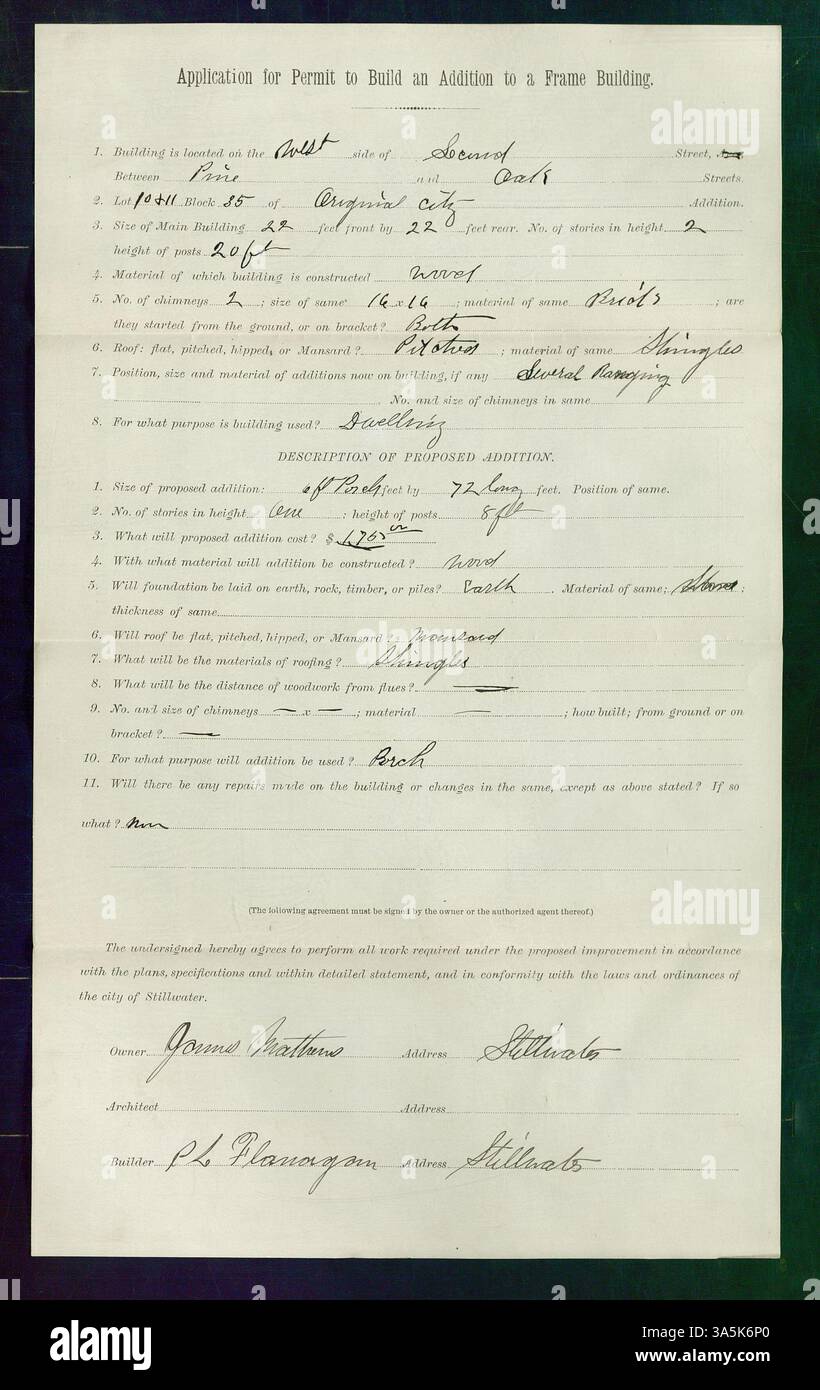 Application for Permit to Build an Addition to a Frame Building.
1. Building is located on the West side of Second Street,
Between Pine and Oak Streets.
2. Lot 10 & 11 Block 35 of Original City Addition.
3. Size of Main Building 22 feet front by 22 feet rear. No. of stories in height 2
height of posts 20 ft
4. Material of which building is constructed Wood
5. No. of chimneys 2; size of same 16 x 16; material of same ; are
they started from the ground, or on bracket? Both
6. Roof: flat, pitched, hipped, or Mansard? Pitched; material of same Shingles
7. Position, size and material of additions now on building, if any Several Ranging
No. and size of chimneys in same
8. For what purpose is building used? Dwelling
DESCRIPTION OF PROPOSED ADDITION.
1. Size of proposed addition: 6 ft Porch feet by 72 long feet. Position of same.
2. No. of stories in height One : height of posts 8 ft
3. What will proposed addition cost? $
4. With what material will addition be constructed? Wood
5. Will foundation be laid on earth, rock, timber, or piles? Earth. Material of same; :
thickness of same
6. Will roof be flat, pitched, hipped, or Mansard?
7. What will be the materials of roofing? Shingles
8. What will be the distance of woodwork from flues? —
9. No. and size of chimneys — x —; material —; how built; from ground or on
bracket? —
10. For what purpose will addition be used? Porch
11. Will there be any repairs made on the building or changes in the same, except as above stated? If so
what?
(The following agreement must be signed by the owner or the authorized agent thereof.)
The undersigned hereby agrees to perform all work required under the proposed improvement in accordance
with the plans, specifications and within detailed statement, and in conformity with the laws and ordinances of
the city of Stillwater.
Owner James Mathews Address Stillwater
Architect Address
Builder P L Flanagan Address Stillwater
alamy
Image ID: 3A5K6P0
www.alamy.com